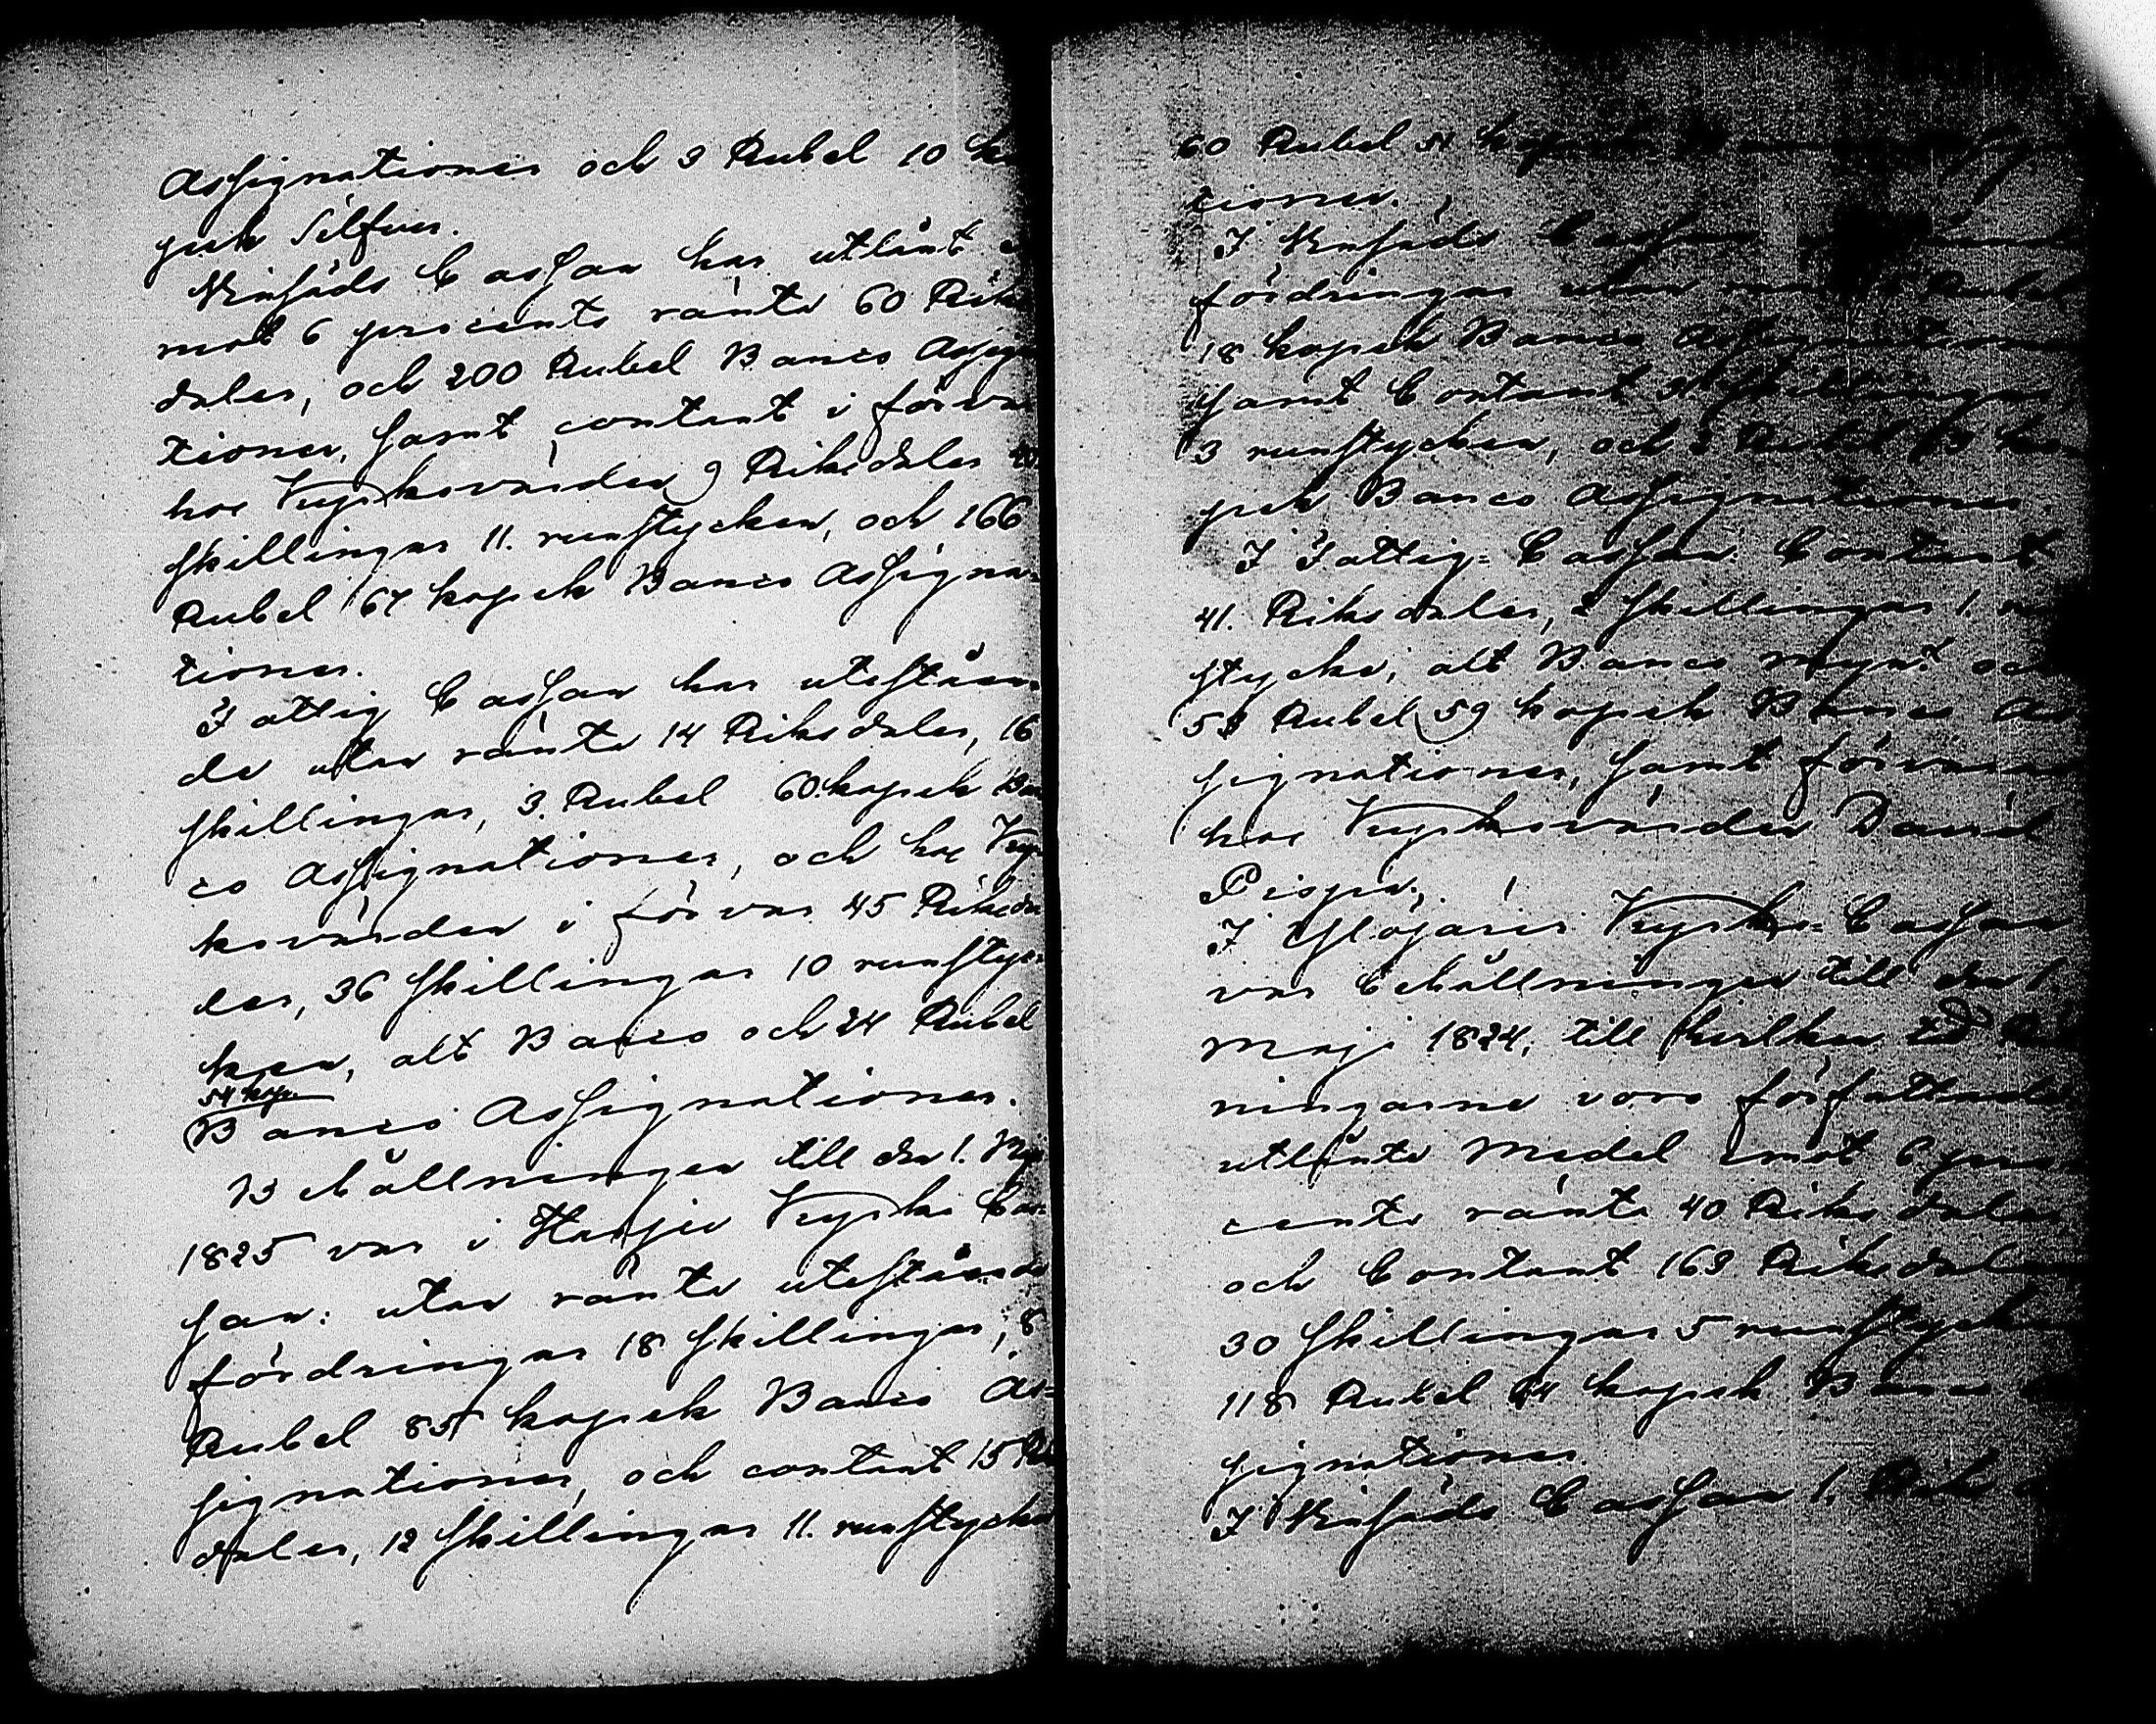 Assignationer och 3 Rubel 10 ko
pek Silfver.
Winsäds Cassan har utlånt e
mot 6 procents ränta 60 Riks
daler, och 200 Rubel Banco Assigna
tioner, samt contant i förva
hos Kyrkovärden 9 Riksdaler
skillingar 11. runstycken, och 166
Rubel 67 kopek Banco Assigna-
tioner.
Fattig Cassan har uteståen
de utan ränta 14 Riksdaler, 16
skillingar, 3. Rubel 60. kopek Ban
co Assignationer, och hos Kyr
kovärden i förvar 45 Riksda
ler, 36 skillingar 10 runstyc-
ken, alt Banco och 24 Rubel
54 kop.
Banco Assignationer.
Behållningen till den 1. Maj
1825 var i Harju Kyrko Cas-
san: utan ränta utestående
fordringar 18 skillingar, 8
Rubel 85 kopek Banco As-
signationer, och contant 15 Rik
daler, 12 skillingar 11. runstycken
60 Rubel 51 kopek
tioner.
I Winsäds Cassan
fordringar utan Rubel
18 kopek Banco Assignationer
samt Contant skillingar,
3 runstycken, och 2 Rubel 13 ko
pek Banco Assignationer.
I Fattig-Cassan: Contant
41. Riksdaler, 2 skillingar 1. run
stycke, alt Banco mynt och
Rubel 59 kopek Banco As
signationer, samt förvaras
hos Kyrkovärden David
Pispa.
I Kyrko-Cassan
var Behållningen till den 1.
Maji 1824, till hvilken tid Räk
ningarne voro författade
utlånta Medel emot 6 pro
cents ränta 40 Riksdaler,
och Contant 163 Riksdaler
30 skillingar 5 runstycken
118 Rubel 24 kopek Banco As
signationer.
I Winsäds Cassan 1. Riksd